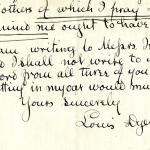 others of which I pray
mind me ought to have
am writing to Messrs.
I shall not write to
word from all three of you
in my car would
Yours sincerely
Louis Dye